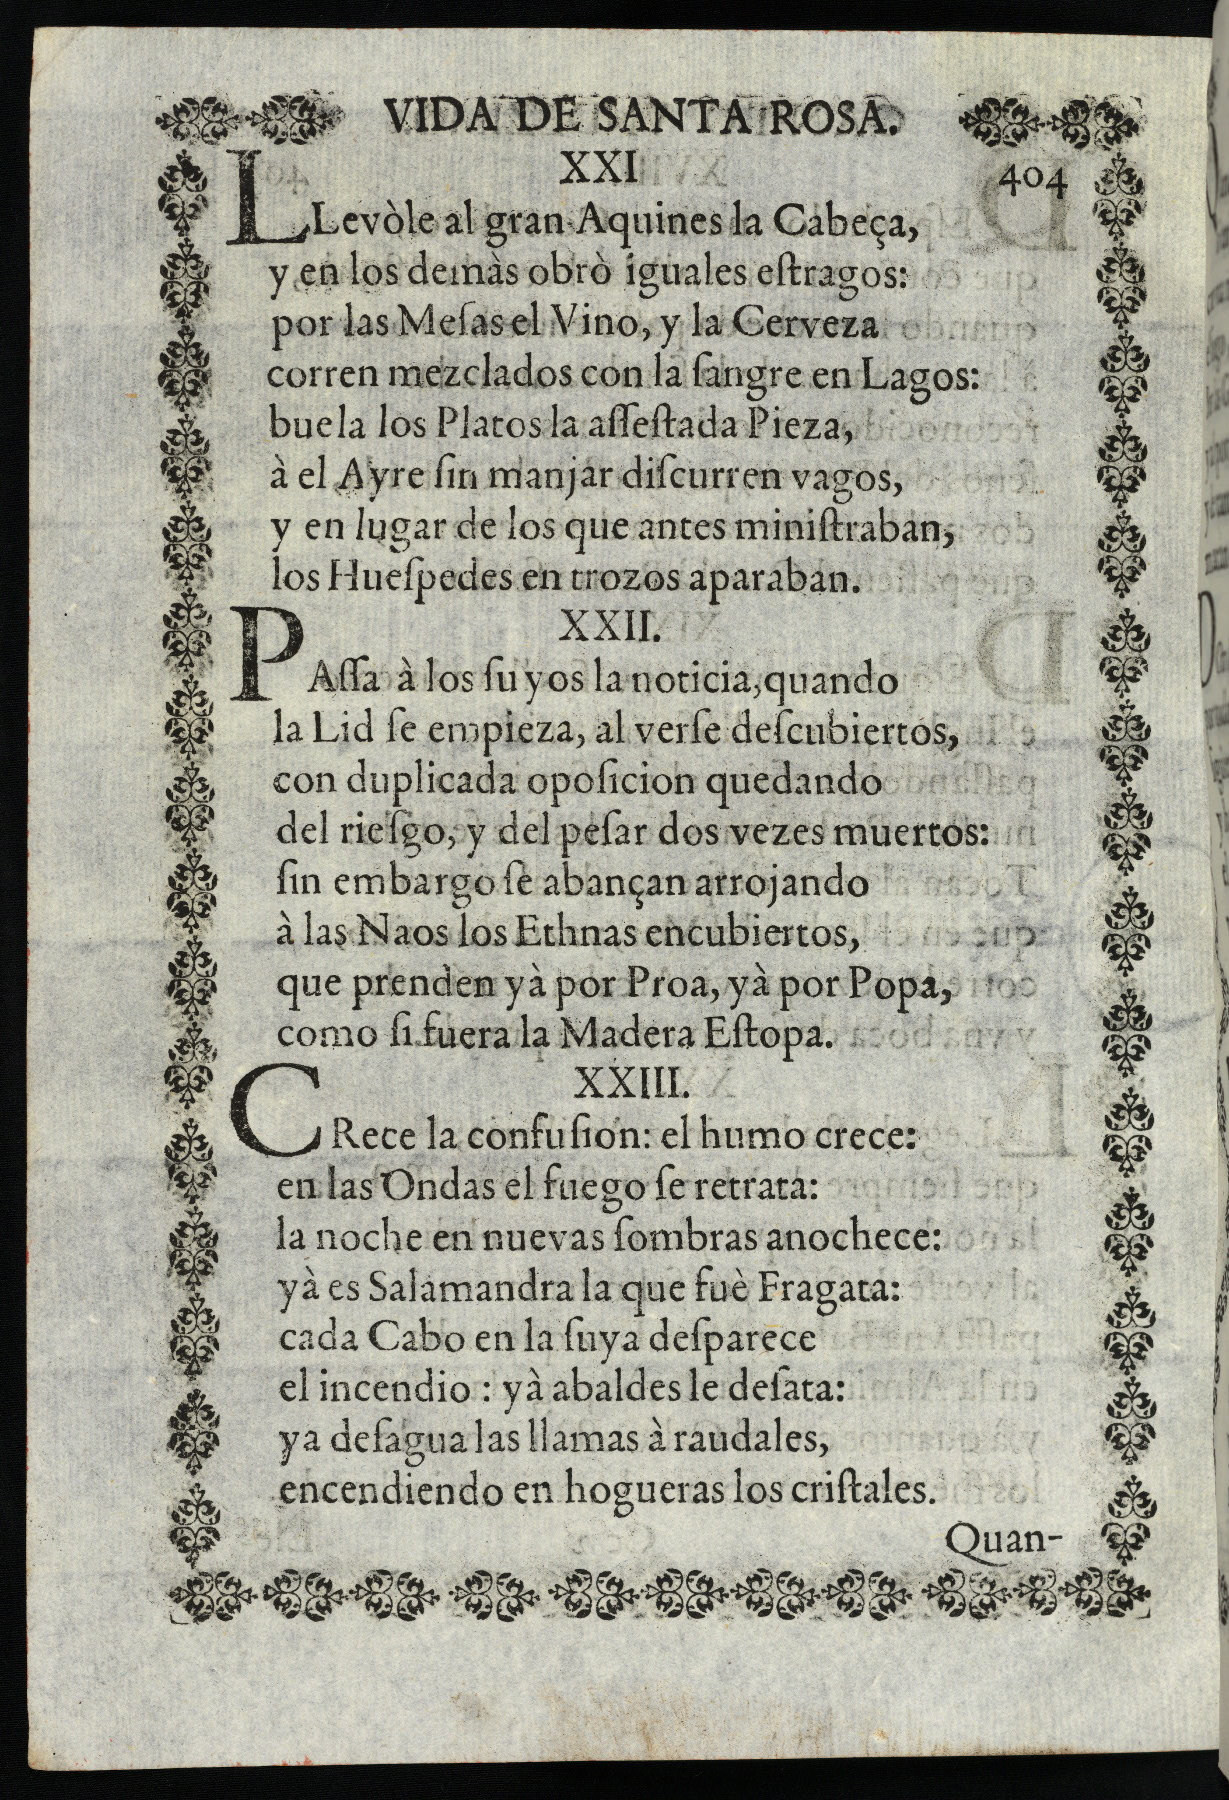 VIDA DE SANTA ROSA.
XXI 404
LLevòle al gran Aquines la Cabeça,
y en los demàs obrò iguales eſtragos:
por las Meſas el Vino, y la Cerveza
corren mezclados con la ſangre en Lagos:
buela los Platos la aſſeſtada Pieza,
à el Ayre ſin manjar diſcurren vagos,
y en lugar de los que antes miniſtraban,
los Hueſpedes en trozos aparaban.
XXII.
PAſſa à los ſuyos la noticia, quando
la Lid ſe empieza, al verſe deſcubiertos,
con duplicada opoſicion quedando
del rieſgo, y del peſar dos vezes muertos:
ſin embargo ſe abançan arrojando
à las Naos los Ethnas encubiertos,
que prenden yà por Proa, yà por Popa,
como ſi fuera la Madera Eſtopa.
XXIII.
CRece la confuſion: el humo crece:
en las Ondas el fuego ſe retrata:
la noche en nuevas ſombras anochece:
yà es Salamandra la que fuè Fragata:
cada Cabo en la ſuya deſparece
el incendio : yà abaldes le deſata:
ya deſagua las llamas à raudales,
encendiendo en hogueras los criſtales.
Quan-